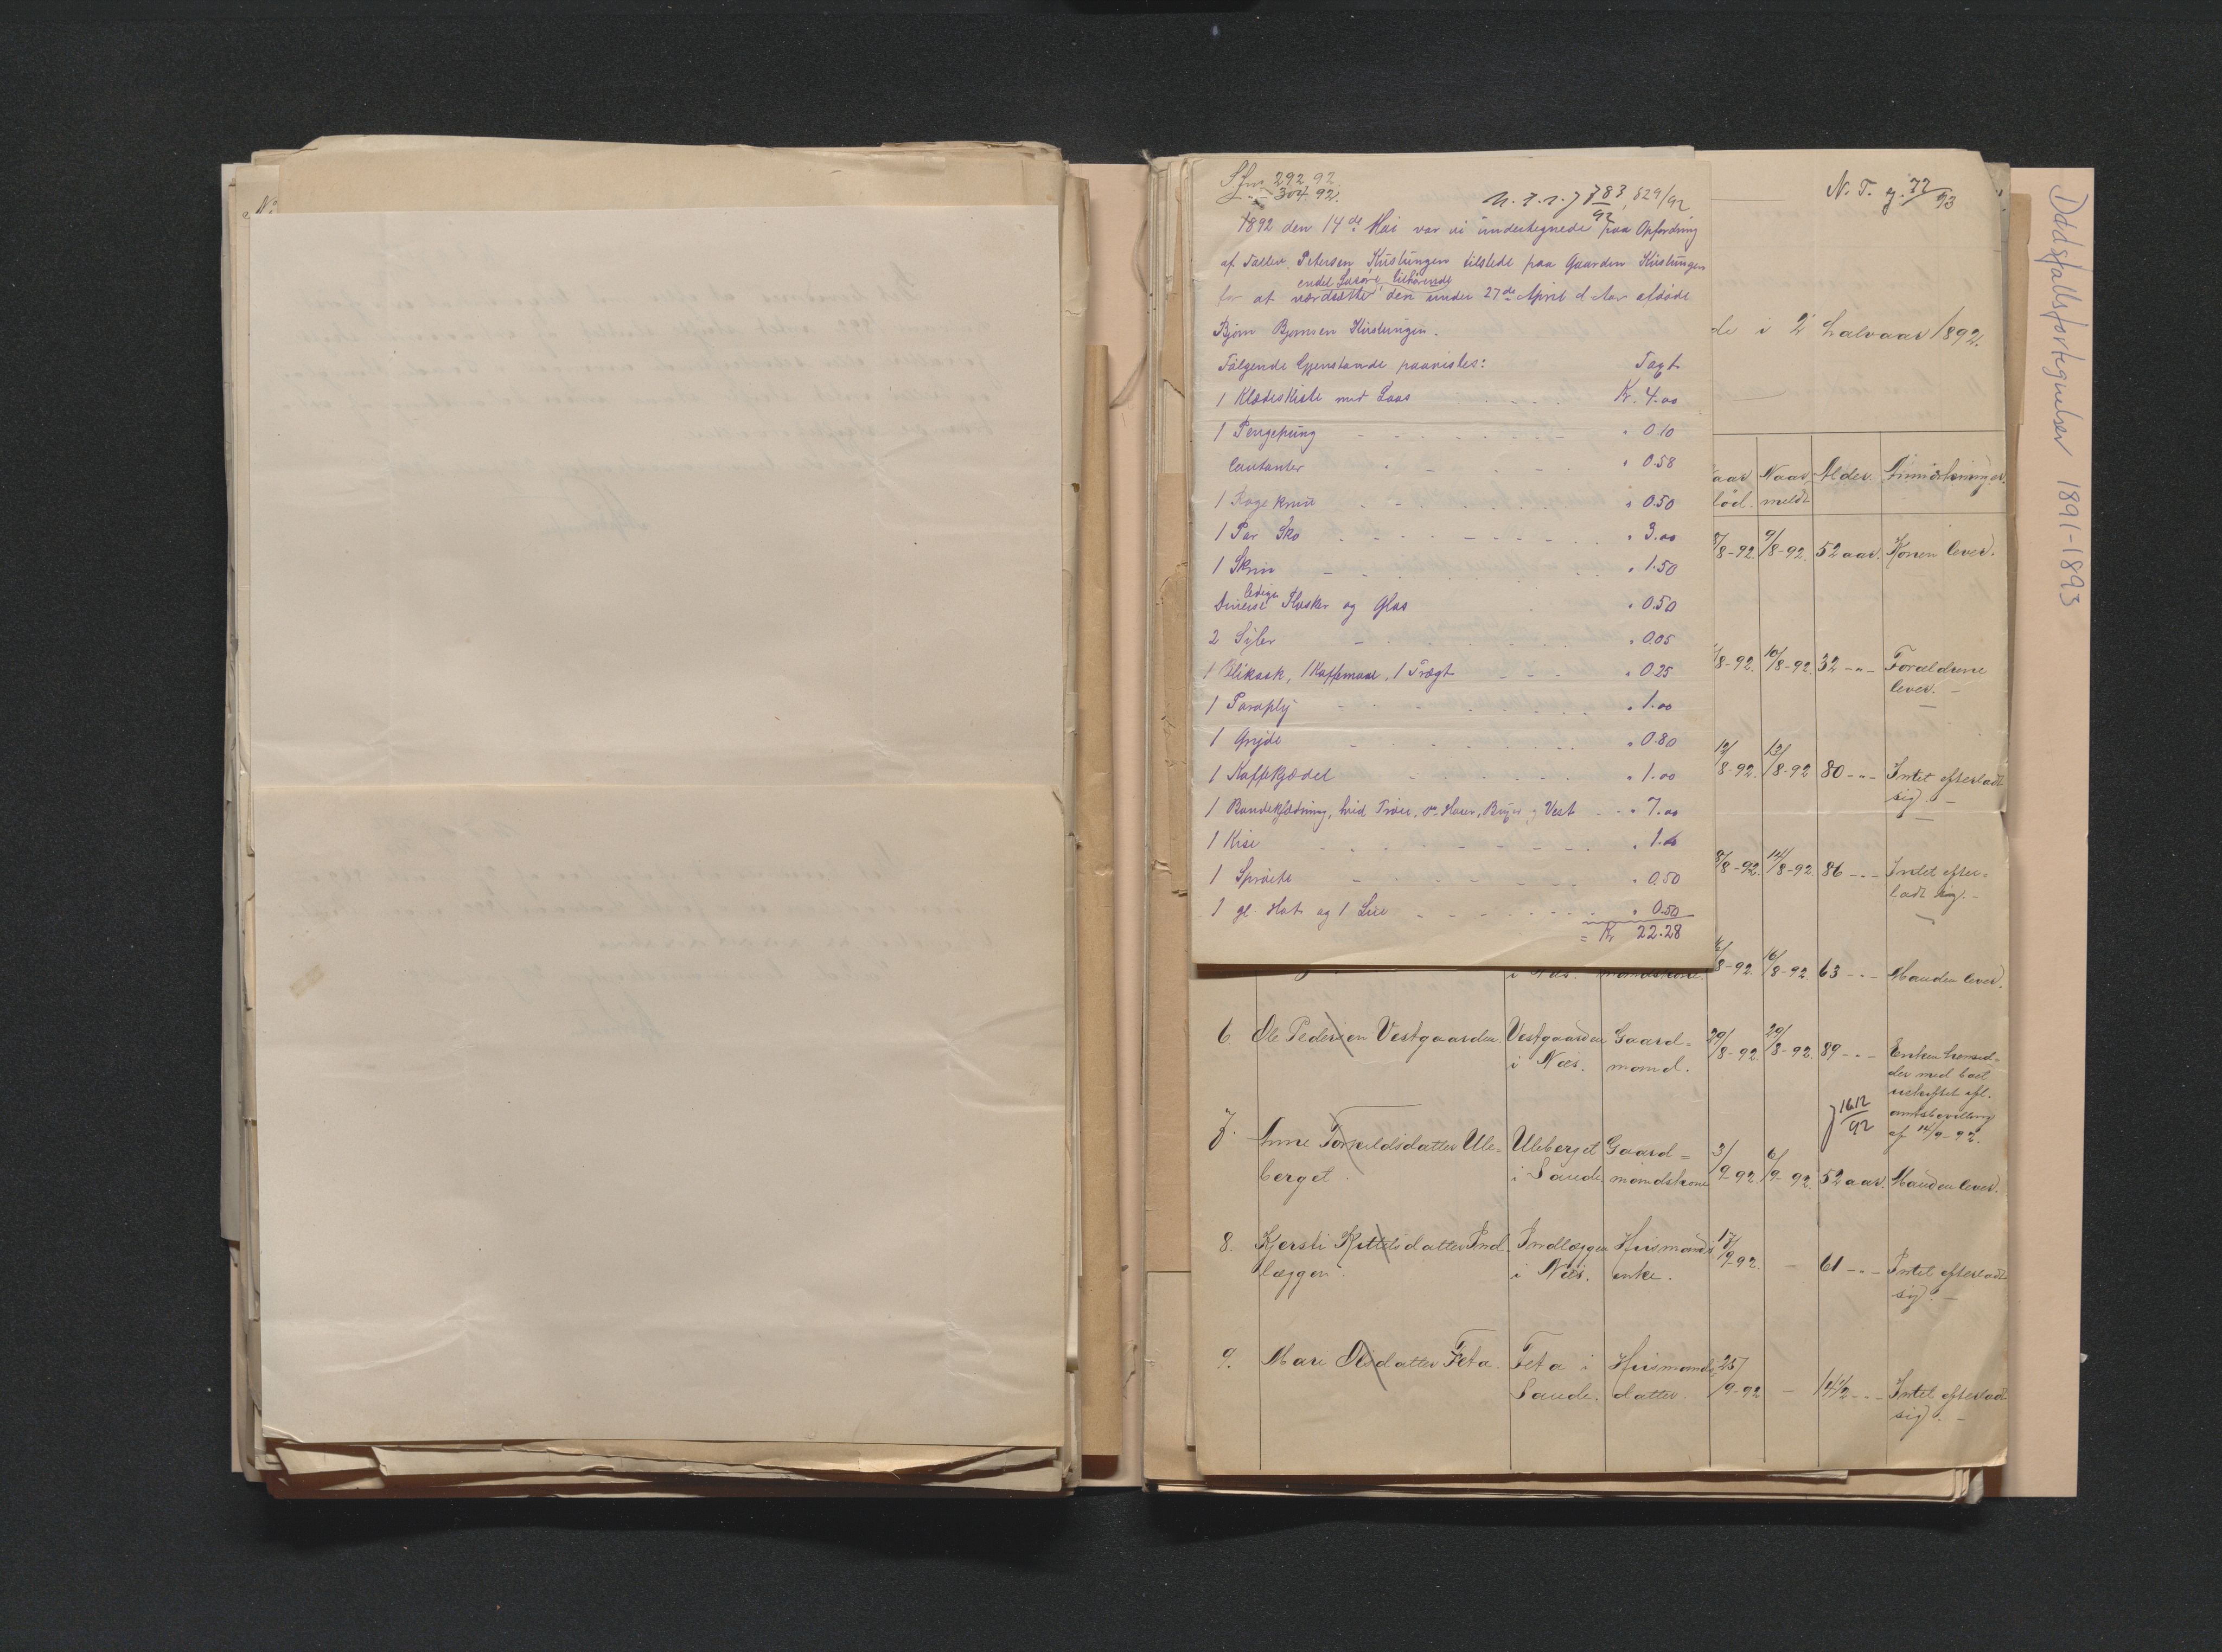 Dødsfallsfortegnelser 1891-1893
Sfn. 292 92
304. 92.
783/92, 829/92
1892 den 14de Mai var vi undertegnede paa Opfordring
af Tallev Petersen Kustungen tilstede paa Gaarden Kustungen
endel Løsøre tilhørende
for at værdsætte den under 27de April d Aar afdøde
Bjørn Bjørnsen Kustungen.
Følgende Gjenstande paavistes: Taxt
1 Klædeskiste med Laas Kr. 4.00
1 Pengepung " 0.10
Contanter " 0.58
1 Kniv " 0.50
1 Par Sko " 3.00
1 Skrin " 1.50
ledige
Diverse Flasker og Glas " 0.50
2 Syler " 0.05
1 Bliksak, 1 Kaffemaal, 1 Tragt " 0.25
1 Paraply " 1.00
1 Gryde " 0.80
1 Kaffekjædel " 1.00
1 Bondeklædning, hvid Trøie, Hoser, Buxe og Vest " 7.00
1 Kise " 1.00
1 Sprøite " 0.50
1 gl. Hat og 1 Lue " 0.50
= Kr 22.28
N. T. J. 77/93
de i 2 halvaar 1892.
Naar meldt Alder. Anmærkninger.
8-92. 9/8-92. 52 aar. Konen lever.
8-92. 10/8-92. 32 -"- Forældrene
lever. -
12/8-92. 13/8-92 80 -"- Intet efterladt
sig. -
8-92. 14/8-92 86 -"- Intet efter=
ladt sig. -
i Næs. mandskone. 8-92. 16/8-92. 63 -"- Manden lever.
6 Ole Pedersen Vestgaarden. Vestgaarden Gaard= 29/8-92. 29/8-92. 89 -"- Enken hensid=
i Næs. mand. der med boet
uskiftet efl.
J 1612/92 amtsbevilling
af 14/9-92.
7. Anne Torkildsdatter Ule= Uleberget Gaard= 3/9-92. 6/9-92. 52 aar. Manden lever.
berget. i Saude. mandskone
8. Kjersti Kittilsdatter Ind= Indlæggen Husmands 17/9-92. - 61 -"- Intet efterladt
læggen. i Næs. enke. sig. -
9. Mari Olsdatter Feta. Feta i Husmands 25/9-92 - 14 1/2 -"- Intet efterladt
Saude. datter. sig. -